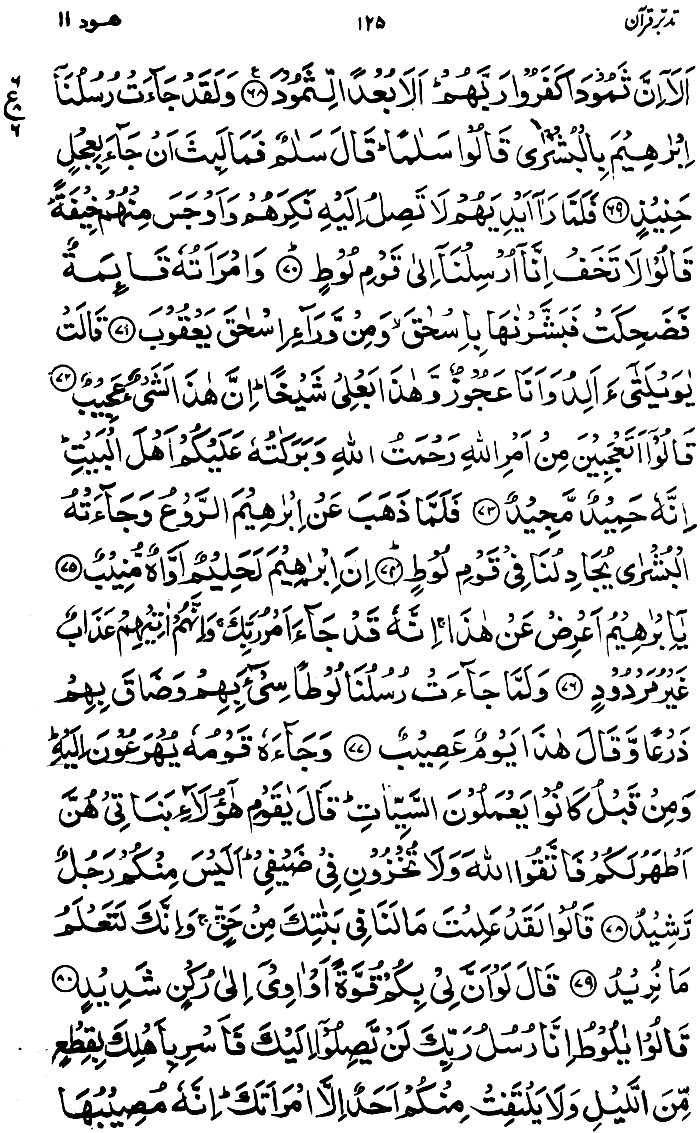 تدبّر قرآن ۱۲۵ هود ۱۱
اَلَآ اِنَّ ثَمُوْدَا۟ كَفَرُوْا رَبَّهُمْ ؕ اَلَا بُعْدًا لِّثَمُوْدَ ۶۸ وَلَقَدْ جَآءَتْ رُسُلُنَآ
اِبْرٰهِيْمَ بِالْبُشْرٰى قَالُوْا سَلٰمًا ؕ قَالَ سَلٰمٌ فَمَا لَبِثَ اَنْ جَآءَ بِعِجْلٍ
حَنِيْذٍ ۶۹ فَلَمَّا رَاٰۤ اَيْدِيَهُمْ لَا تَصِلُ اِلَيْهِ نَكِرَهُمْ وَاَوْجَسَ مِنْهُمْ خِيْفَةً ؕ
قَالُوْا لَا تَخَفْ اِنَّآ اُرْسِلْنَآ اِلٰى قَوْمِ لُوْطٍ ۷۰ وَامْرَاَتُهٗ قَآئِمَةٌ
فَضَحِكَتْ فَبَشَّرْنٰهَا بِاِسْحٰقَ ۙ وَمِنْ وَّرَآءِ اِسْحٰقَ يَعْقُوْبَ ۷۱ قَالَتْ
يٰوَيْلَتٰٓى ءَاَلِدُ وَاَنَا عَجُوْزٌ وَّهٰذَا بَعْلِيْ شَيْخًا ؕ اِنَّ هٰذَا لَشَيْءٌ عَجِيْبٌ ۷۲
قَالُوْٓا اَتَعْجَبِيْنَ مِنْ اَمْرِ اللهِ رَحْمَتُ اللهِ وَبَرَكٰتُهٗ عَلَيْكُمْ اَهْلَ الْبَيْتِ ؕ
اِنَّهٗ حَمِيْدٌ مَّجِيْدٌ ۷۳ فَلَمَّا ذَهَبَ عَنْ اِبْرٰهِيْمَ الرَّوْعُ وَجَآءَتْهُ
الْبُشْرٰى يُجَادِلُنَا فِيْ قَوْمِ لُوْطٍ ۷۴ اِنَّ اِبْرٰهِيْمَ لَحَلِيْمٌ اَوَّاهٌ مُّنِيْبٌ ۷۵
يٰٓاِبْرٰهِيْمُ اَعْرِضْ عَنْ هٰذَا ۚ اِنَّهٗ قَدْ جَآءَ اَمْرُ رَبِّكَ ۚ وَاِنَّهُمْ اٰتِيْهِمْ عَذَابٌ
غَيْرُ مَرْدُوْدٍ ۷۶ وَلَمَّا جَآءَتْ رُسُلُنَا لُوْطًا سِيْٓءَ بِهِمْ وَضَاقَ بِهِمْ
ذَرْعًا وَّقَالَ هٰذَا يَوْمٌ عَصِيْبٌ ۷۷ وَجَآءَهٗ قَوْمُهٗ يُهْرَعُوْنَ اِلَيْهِ ؕ
وَمِنْ قَبْلُ كَانُوْا يَعْمَلُوْنَ السَّيِّاٰتِ ؕ قَالَ يٰقَوْمِ هٰٓؤُلَآءِ بَنَاتِيْ هُنَّ
اَطْهَرُ لَكُمْ فَاتَّقُوا اللهَ وَلَا تُخْزُوْنِ فِيْ ضَيْفِيْ ؕ اَلَيْسَ مِنْكُمْ رَجُلٌ
رَّشِيْدٌ ۷۸ قَالُوْا لَقَدْ عَلِمْتَ مَا لَنَا فِيْ بَنٰتِكَ مِنْ حَقٍّ ۚ وَاِنَّكَ لَتَعْلَمُ
مَا نُرِيْدُ ۷۹ قَالَ لَوْ اَنَّ لِيْ بِكُمْ قُوَّةً اَوْ اٰوِيْٓ اِلٰى رُكْنٍ شَدِيْدٍ ۸۰
قَالُوْا يٰلُوْطُ اِنَّا رُسُلُ رَبِّكَ لَنْ يَّصِلُوْٓا اِلَيْكَ فَاَسْرِ بِاَهْلِكَ بِقِطْعٍ
مِّنَ الَّيْلِ وَلَا يَلْتَفِتْ مِنْكُمْ اَحَدٌ اِلَّا امْرَاَتَكَ ؕ اِنَّهٗ مُصِيْبُهَا